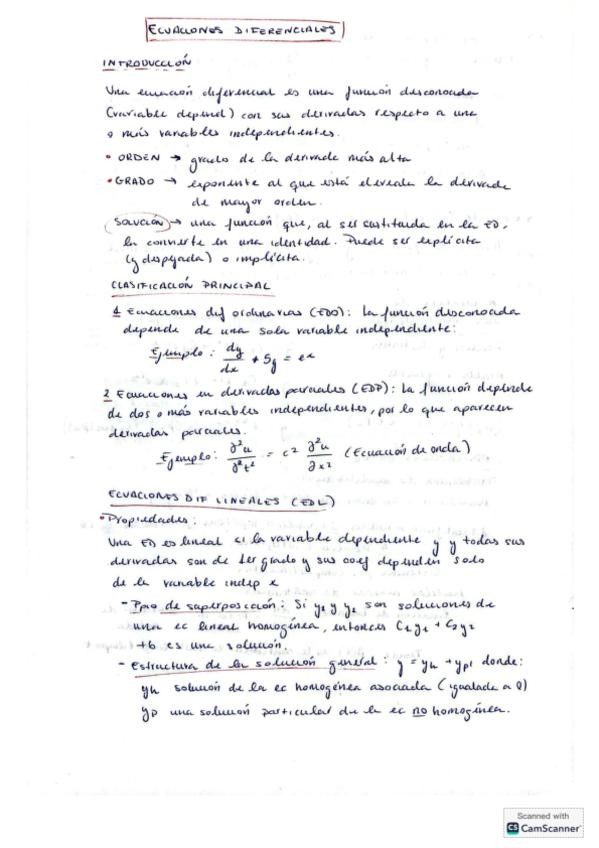 ECUACIONES DIFERENCIALES
INTRODUCCIÓN
Una ecuación diferencial es una función desconocada
(variable depend) con sus derivadas respecto a una
o más variables independientes.
• ORDEN → grado de la derivada más alta
• GRADO → exponente al que está elevada la derivada
de mayor orden.
SOLUCIÓN → una función que, al ser sustituida en la ED,
la convierte en una identidad. Puede ser explícita
(y despejada) o implícita.
CLASIFICACIÓN PRINCIPAL
1 Ecuaciones dif ordinarias (EDO): La función desconocada
depende de una sola variable independiente:
Ejemplo: dy/dx + 5y = ex
2 Ecuaciones en derivadas parciales (EDP): La función depende
de dos o más variables independientes, por lo que aparecen
derivadas parciales.
Ejemplo: ∂²u/∂²t² = c² ∂²u/∂x² (Ecuación de onda)
ECUACIONES DIF LINEALES (EDL)
• Propiedades:
Una ED es lineal si la variable dependiente y y todas sus
derivadas son de 1er grado y sus coef dependen solo
de la variable indep x
- Ppio de superposición: Si y1 y y2 son soluciones de
una ec lineal homogénea, entonces C1y1 + C2y2
tb es una solución.
- Estructura de la solución general: y = yh + yp, donde:
yh solución de la ec homogénea asociada (igualada a 0)
yp una solución particular de la ec no homogénea.
Scanned with
CS CamScanner